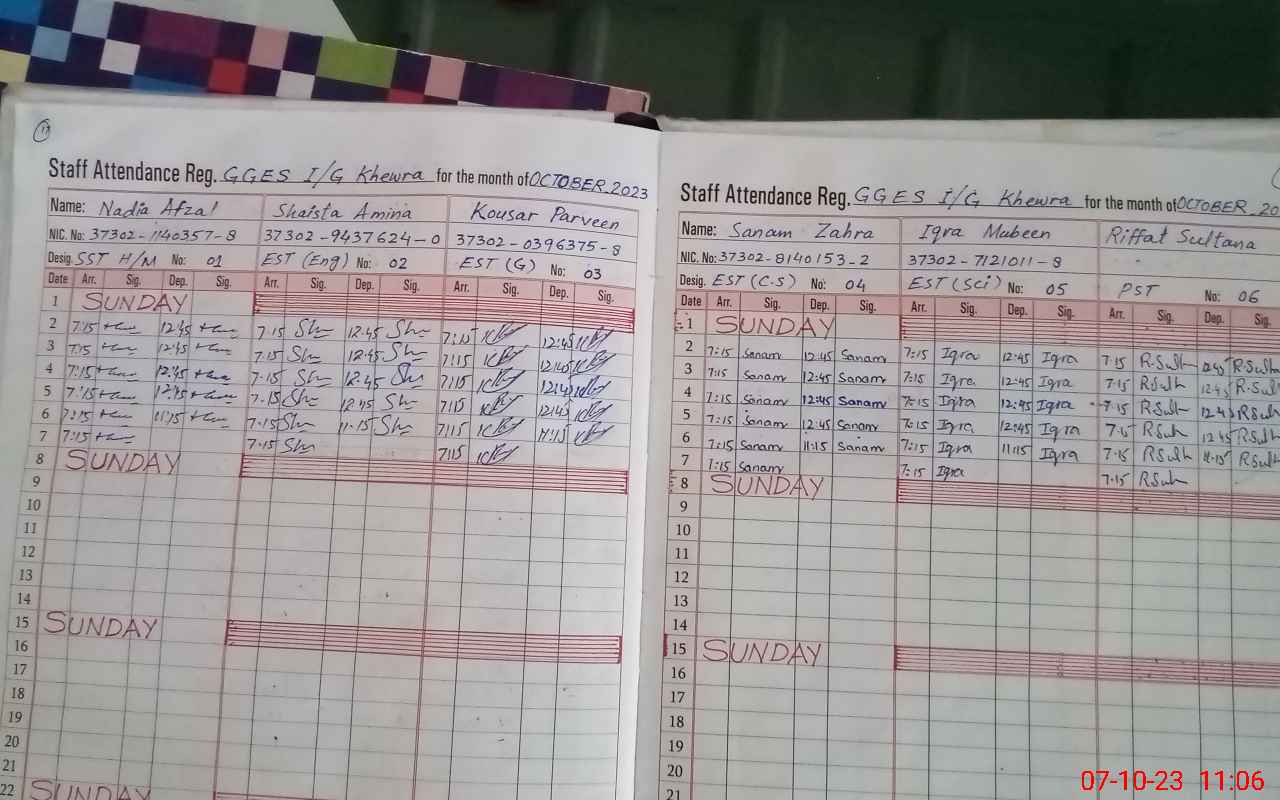 Staff Attendance Reg. GGES I/G Khewra for the month of OCTOBER 2023
Name: Nadia Afzal Shaista Amina Kousar Parveen
NIC. No: 37302-1140357-8 37302-9437624-0 37302-0396375-8
Desig. SST H/M No: 01 EST (Eng) No: 02 EST (G) No: 03
Date Arr. Sig. Dep. Sig. Arr. Sig. Dep. Sig. Arr. Sig. Dep. Sig.
1 SUNDAY
2 7:15 12:45 7:15 12:45 7:15 12:45
3 7:15 12:45 7:15 12:45 7:15 12:45
4 7:15 12:45 7:15 12:45 7:15 12:45
5 7:15 12:45 7:15 12:45 7:15 12:45
6 7:15 11:15 7:15 11:15 7:15 11:15
7 7:15 7:15 7:15
8 SUNDAY
9
10
11
12
13
14
15 SUNDAY
16
17
18
19
20
21
22 SUNDAY
Staff Attendance Reg. GGES I/G Khewra for the month of OCTOBER 20
Name: Sanam Zahra Iqra Mubeen Riffat Sultana
NIC. No: 37302-8140153-2 37302-7121011-8
Desig. EST (C.S) No: 04 EST (Sci) No: 05 PST No: 06
Date Arr. Sig. Dep. Sig. Arr. Sig. Dep. Sig. Arr. Sig. Dep. Sig.
1 SUNDAY
2 7:15 Sanam 12:45 Sanam 7:15 Iqra 12:45 Iqra 7:15 R.Sulh 12:45 R.Sulh
3 7:15 Sanam 12:45 Sanam 7:15 Iqra 12:45 Iqra 7:15 RSulh 12:45 R.Sulh
4 7:15 Sanam 12:45 Sanam 7:15 Iqra 12:45 Iqra 7:15 RSulh 12:45 RSulh
5 7:15 Sanam 12:45 Sanam 7:15 Iqra 12:45 Iqra 7:15 RSulh 12:45 RSulh
6 7:15 Sanam 11:15 Sanam 7:15 Iqra 11:15 Iqra 7:15 RSulh 11:15 RSulh
7 7:15 Sanam 7:15 Iqra 7:15 RSulh
8 SUNDAY
9
10
11
12
13
14
15 SUNDAY
16
17
18
19
20
21
07-10-23 11:06